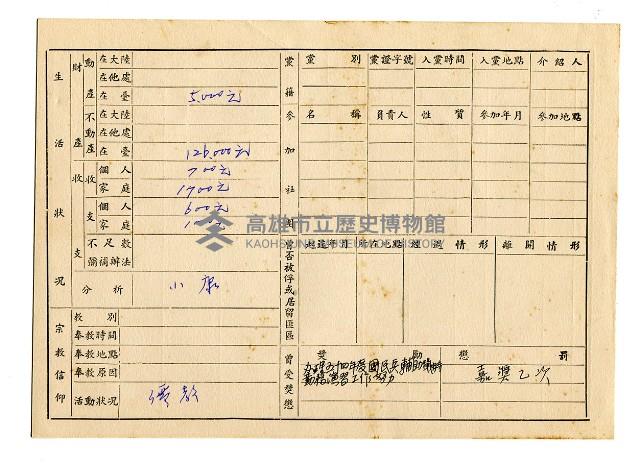 生活狀況
財產
動產
在大陸
在他處
在臺 5,000元
不動產
在大陸
在他處
在臺 126,000元
收支
收
個人 700元
家庭 1700元
支
個人 600元
家庭
不足數
彌補辦法
分析 小康
宗教信仰
教別
奉教時間
奉教地點
奉教原因
活動狀況 儒教
黨籍
黨別 黨證字號 入黨時間 入黨地點 介紹人
參加社團
名稱 負責人 性質 參加年月 參加地點
曾否被俘或居留匪區
年月 所在地點 經過情形 離開情形
曾受獎懲
獎勵 懲罰
五十四年度國民兵輔助
勤務演習工作努力
嘉獎乙次
高雄市立歷史博物館
KAOHSIUNG MUSEUM OF HISTORY